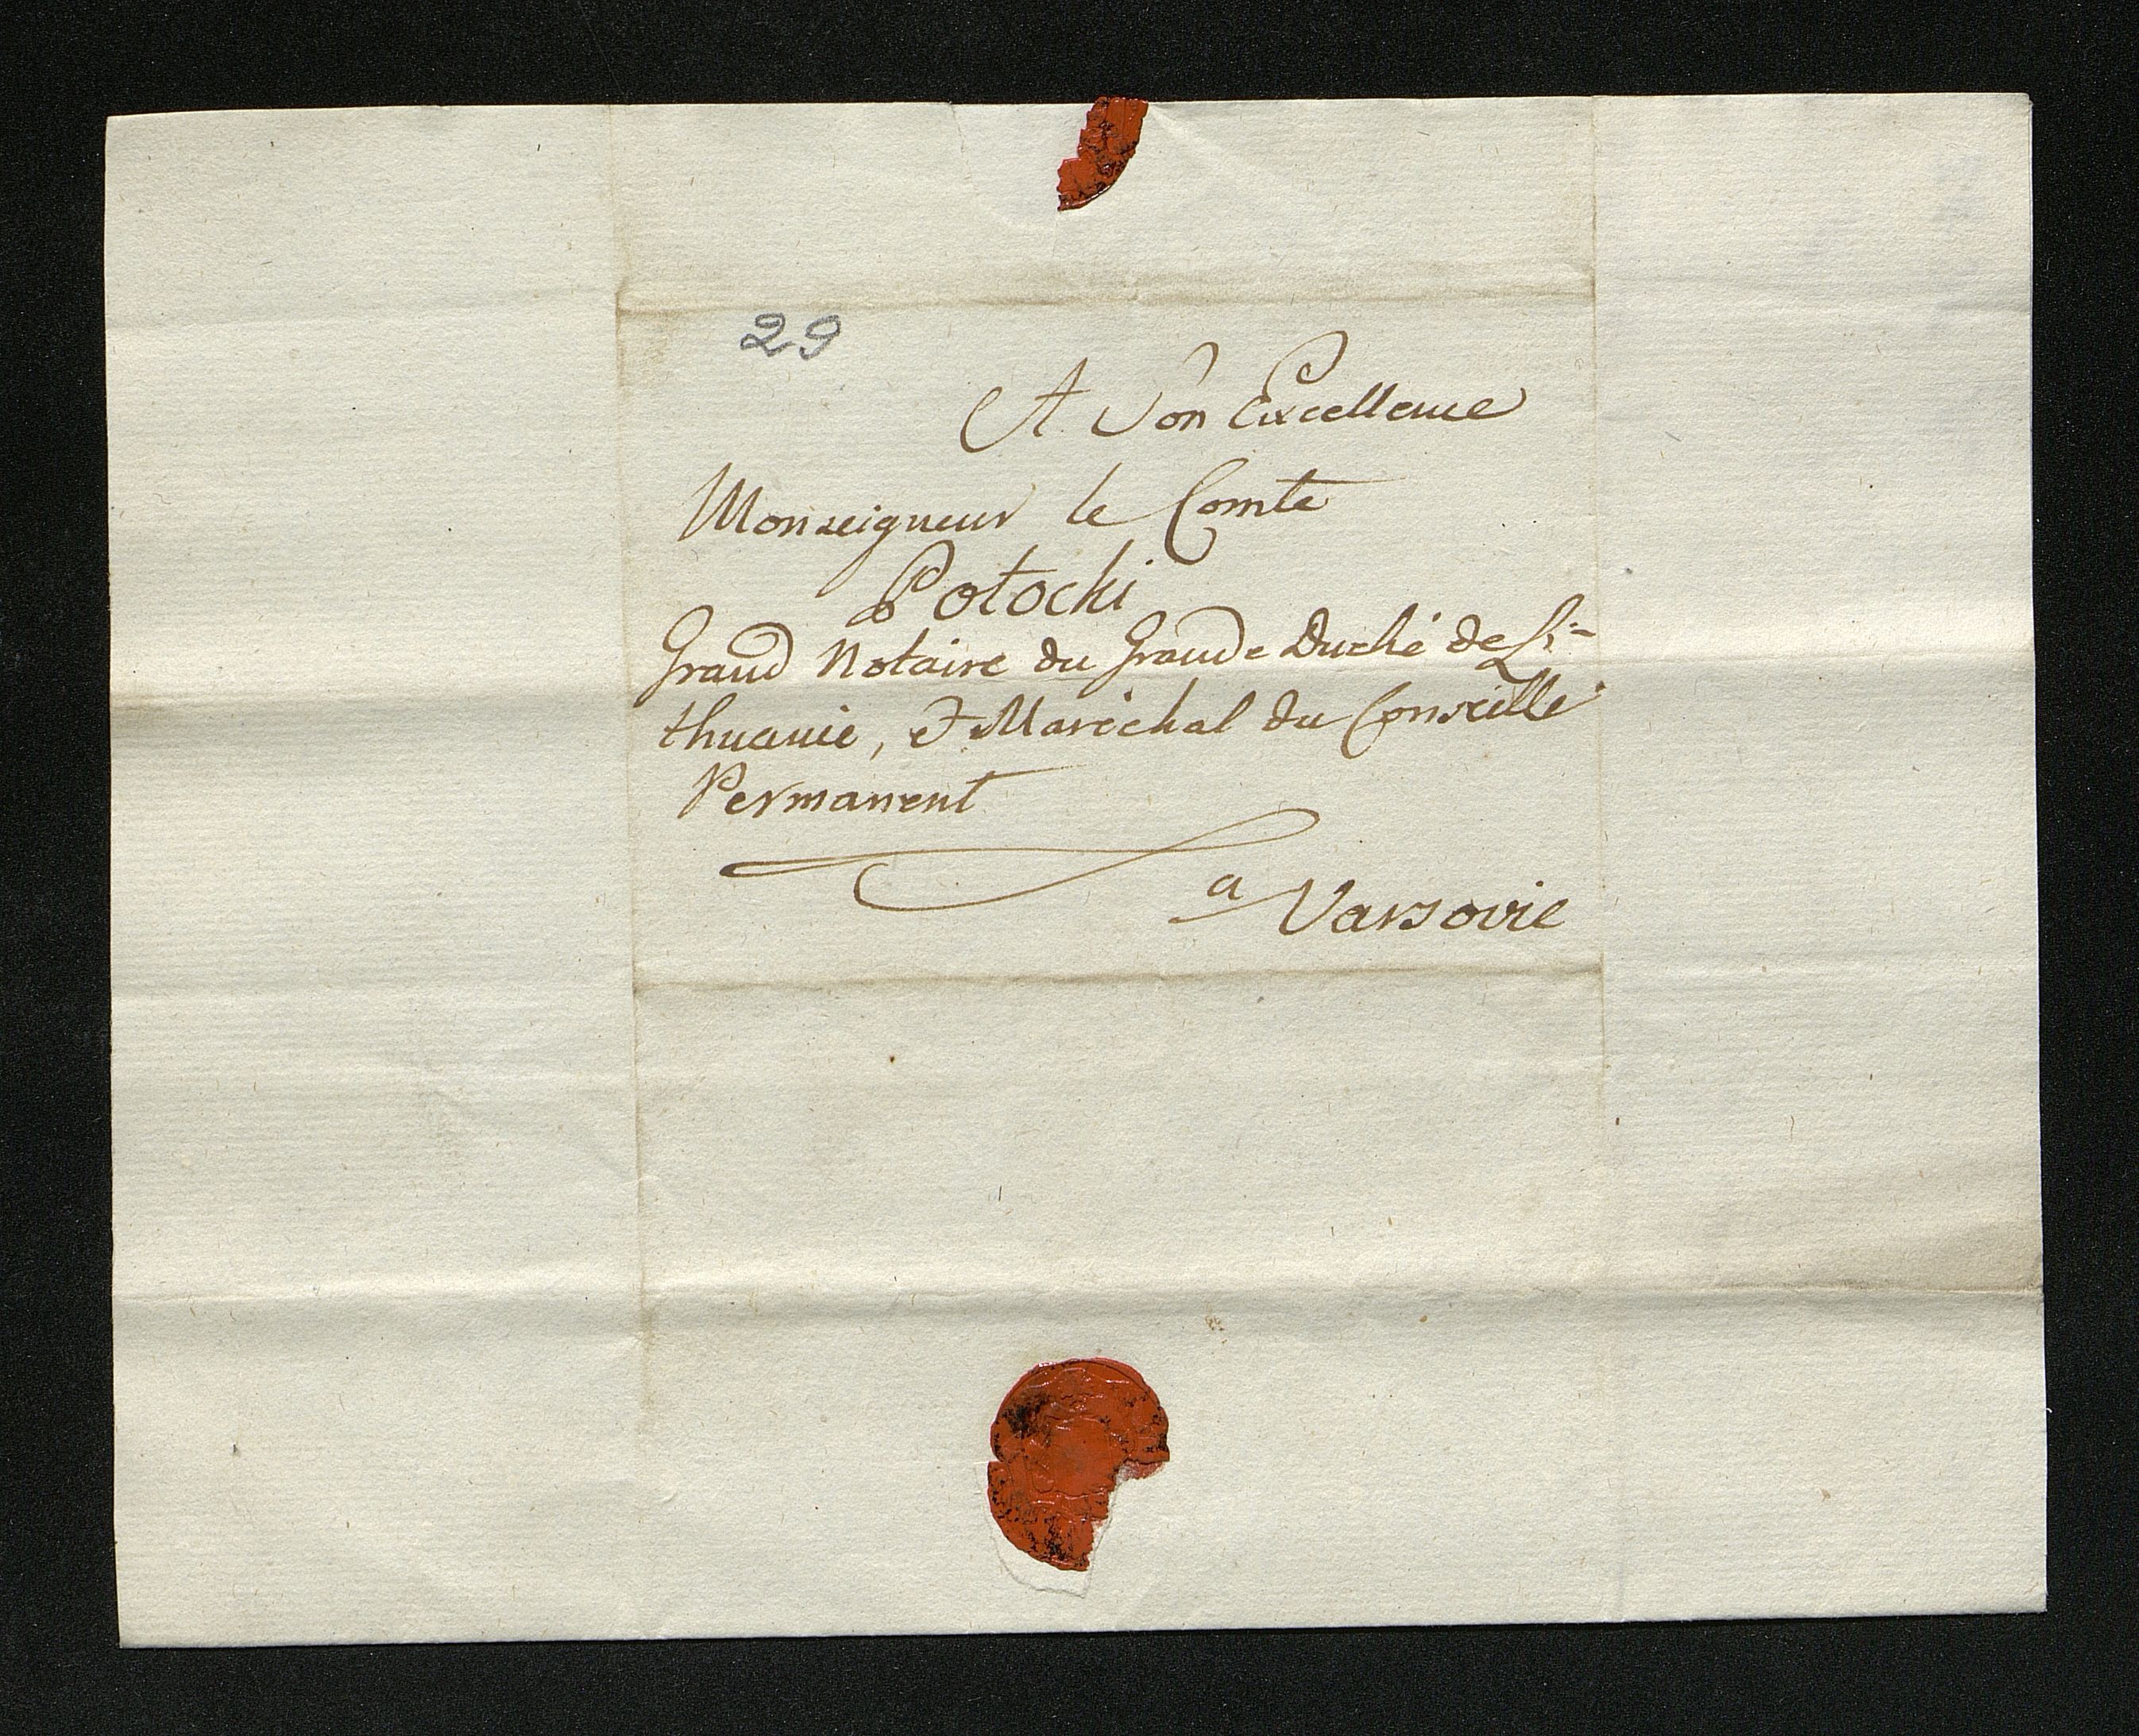 29
A Son Excellence
Monseigneur le Comte
Potocki
Grand Notaire du Grande Duché de Li=
thuanie, et Maréchal du Conseille
Permanent
a Varsovie